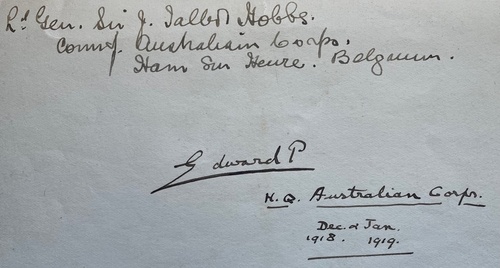 Lt Gen. Sir J. Talbot Hobbs.
Commg. Australian Corps.
Ham Sur Heure. Belgium.
Edward P
H.Q. Australian Corps.
Dec. & Jan.
1918. 1919.